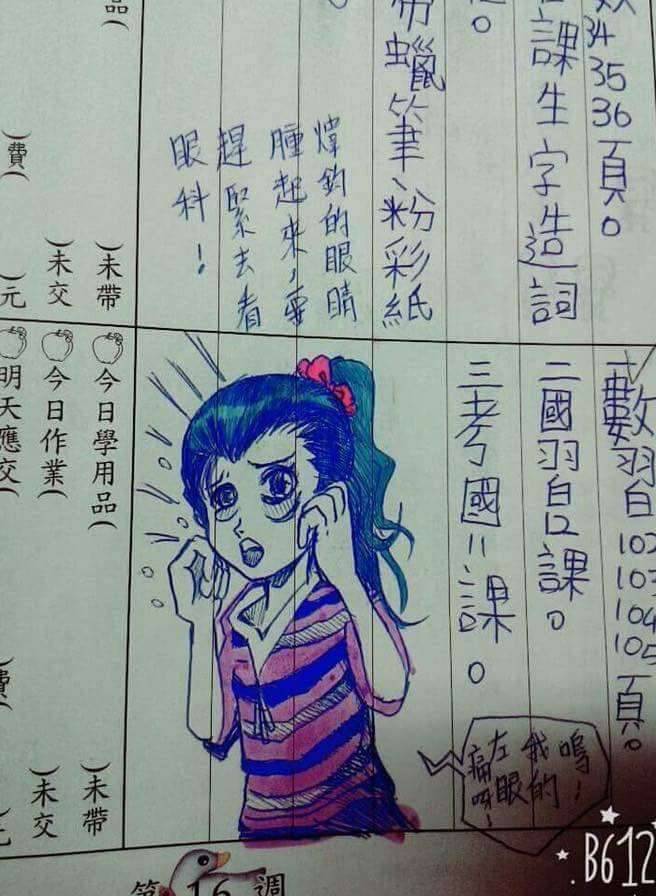 34 35 36頁。
課生字造詞
帶蠟筆、粉彩紙
煒鈞的眼睛
腫起來,要
趕緊去看
眼科!
品(
)未帶
)未交
)費(
)元
一數習102 103 104 105頁。
二國習8課。
三考國二課。
嗚!
我的
左眼
痛呀!
今日學用品(
)未帶
今日作業(
)未交
明天應交(
第16週
B612